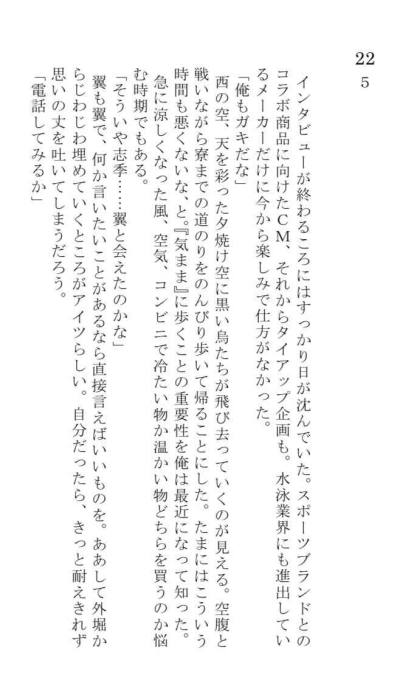 22
5
インタビューが終わるころにはすっかり日が沈んでいた。スポーツブランドとの
コラボ商品に向けたCM、それからタイアップ企画も。水泳業界にも進出してい
るメーカーだけに今から楽しみで仕方がなかった。
「俺もガキだな」
西の空、天を彩った夕焼け空に黒い烏たちが飛び去っていくのが見える。空腹と
戦いながら寮までの道のりをのんびり歩いて帰ることにした。たまにはこういう
時間も悪くないな、と。『気まま』に歩くことの重要性を俺は最近になって知った。
急に涼しくなった風、空気、コンビニで冷たい物か温かい物どちらを買うのか悩
む時期でもある。
「そういや志季……翼と会えたのかな」
翼も翼で、何か言いたいことがあるなら直接言えばいいものを。ああして外堀か
らじわじわ埋めていくところがアイツらしい。自分だったら、きっと耐えきれず
思いの丈を吐いてしまうだろう。
「電話してみるか」